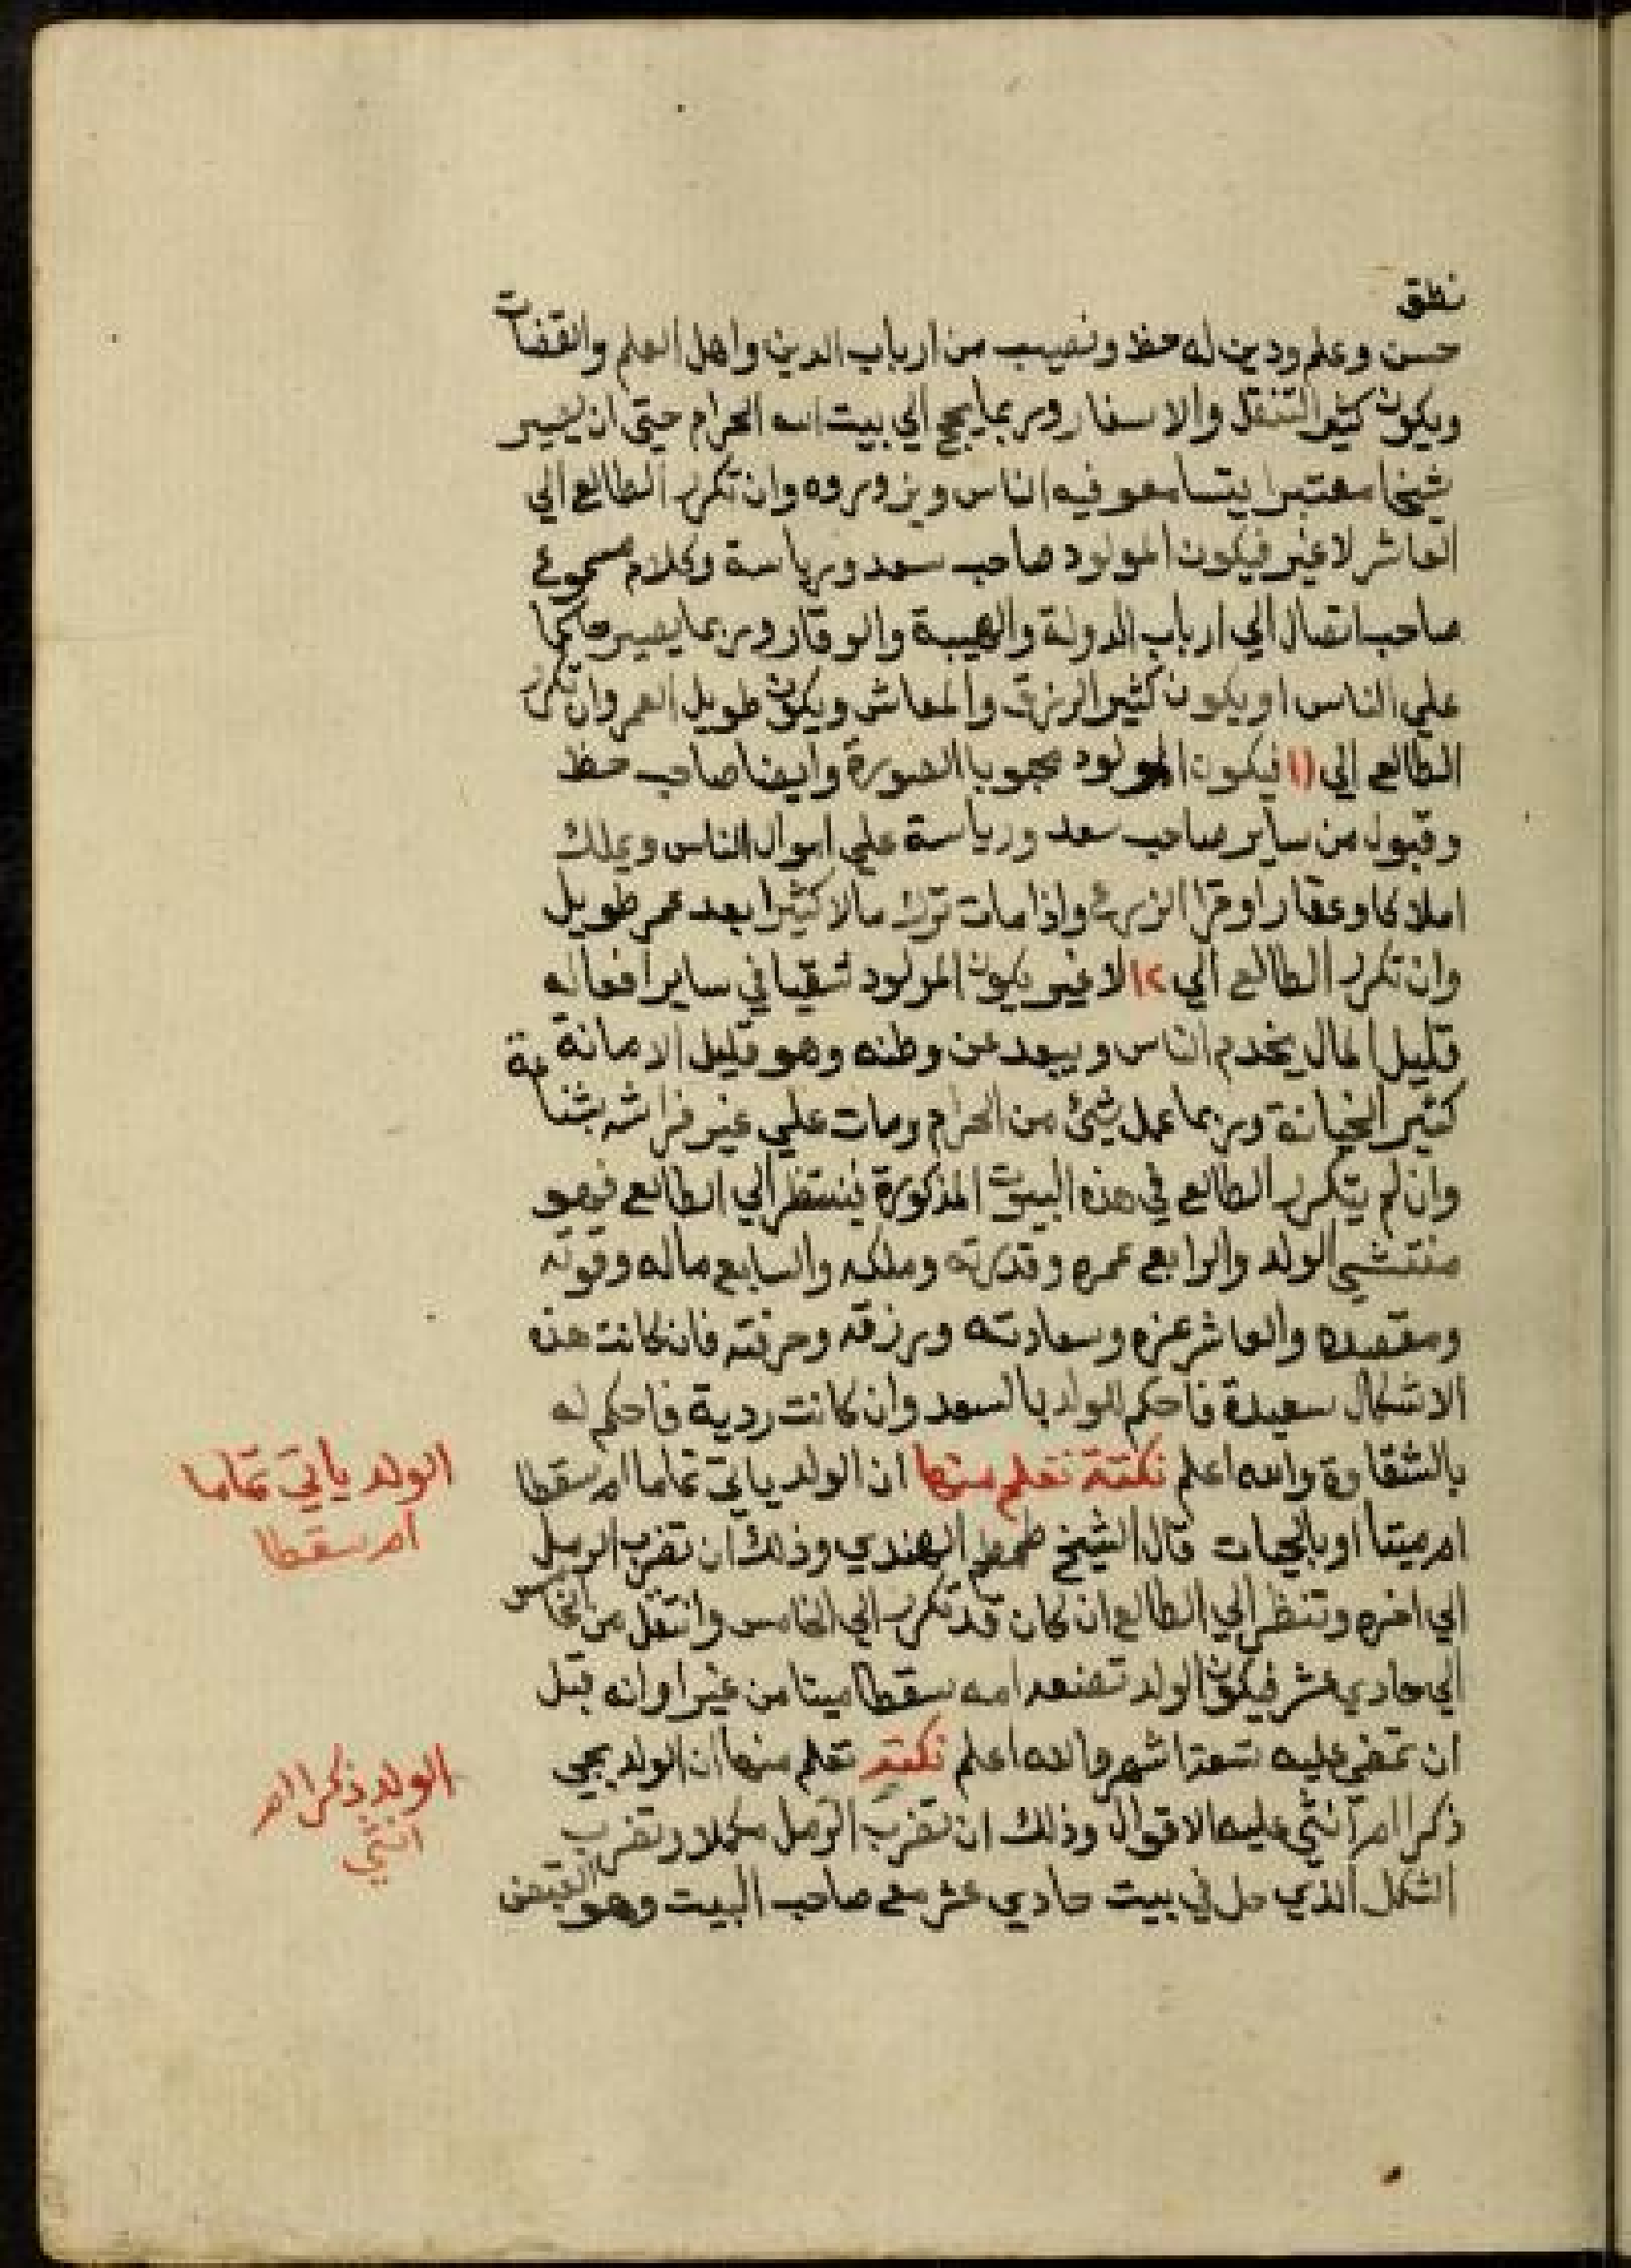 نطق
حسن وعلم ودين له حظ ونصيب من ارباب الدين واهل العلم والقضات
ويكون كثير التنقل والاسفار وربما يحج الي بيت الله الحرام حتى ان يصير
شيخا معتبرا يتسامعو فيه الناس ويزوروه وان تكرر الطالع الي
العاشر لا غير فيكون المولود صاحب سعد ورياسة وكلام مسموع
صاحب اتصال الي ارباب الدولة والهيبة والوقار وربما يصير حاكما
علي الناس او يكون كثير الرزق والمعاش ويكون طويل العمر وان تكرر
الطالع الي ١١ فيكون المولود محبوبا الصورة وايضا صاحب حظ
وقبول من ساير صاحب سعد ورياسة علي اموال الناس ويملك
املاكا وعقارا وقرا الزرع واذا مات ترك مالا كثيرا بعد عمر طويل
وان تكرر الطالع الي ١٢ لا غير يكون المولود شقيا في ساير افعاله
قليل المال يخدم الناس ويبعد عن وطنه وهو قليل الامانة
كثير الخيانة وربما عمل شيئ من الحرام ومات علي غير فراشه
وان لم يتكرر الطالع في هذه البيوت المذكورة فينتظر الي الطالع فهو
منتشي الولد والرابع عمره وقدرته وملكه والسابع ماله وقوته
ومقصده والعاشر عزه وسعادته ورزقه وحرفته فان كانت هذه
الاشكال سعيدة فاحكم للولد بالسعد وان كانت ردية فاحكم له
بالشقاوة والله اعلم نكتة تعلم منها ان الولد ياتي تماما ام سقطا
ام ميتا او بالحيات قال الشيخ طمطم الهندي وذلك ان تضرب الرمل
الي اخره وتنظر الي الطالع ان كان قد تكرر الي الخامس وانتقل من الخامس
الي حادي عشر فيكون الولد تضعه امه سقطا ميتا من غير اوانه قبل
ان تمضي عليه تسعة اشهر والله اعلم نكتة تعلم منها ان الولد يجي
ذكرا ام انثي عليه الاقوال وذلك ان تضرب الرمل مكملا وتضرب
الشكل الذي حل في بيت حادي عشر مع صاحب البيت وهو القبض
الولد ياتي تماما
ام سقطا
الولد ذكرا ام
انثي